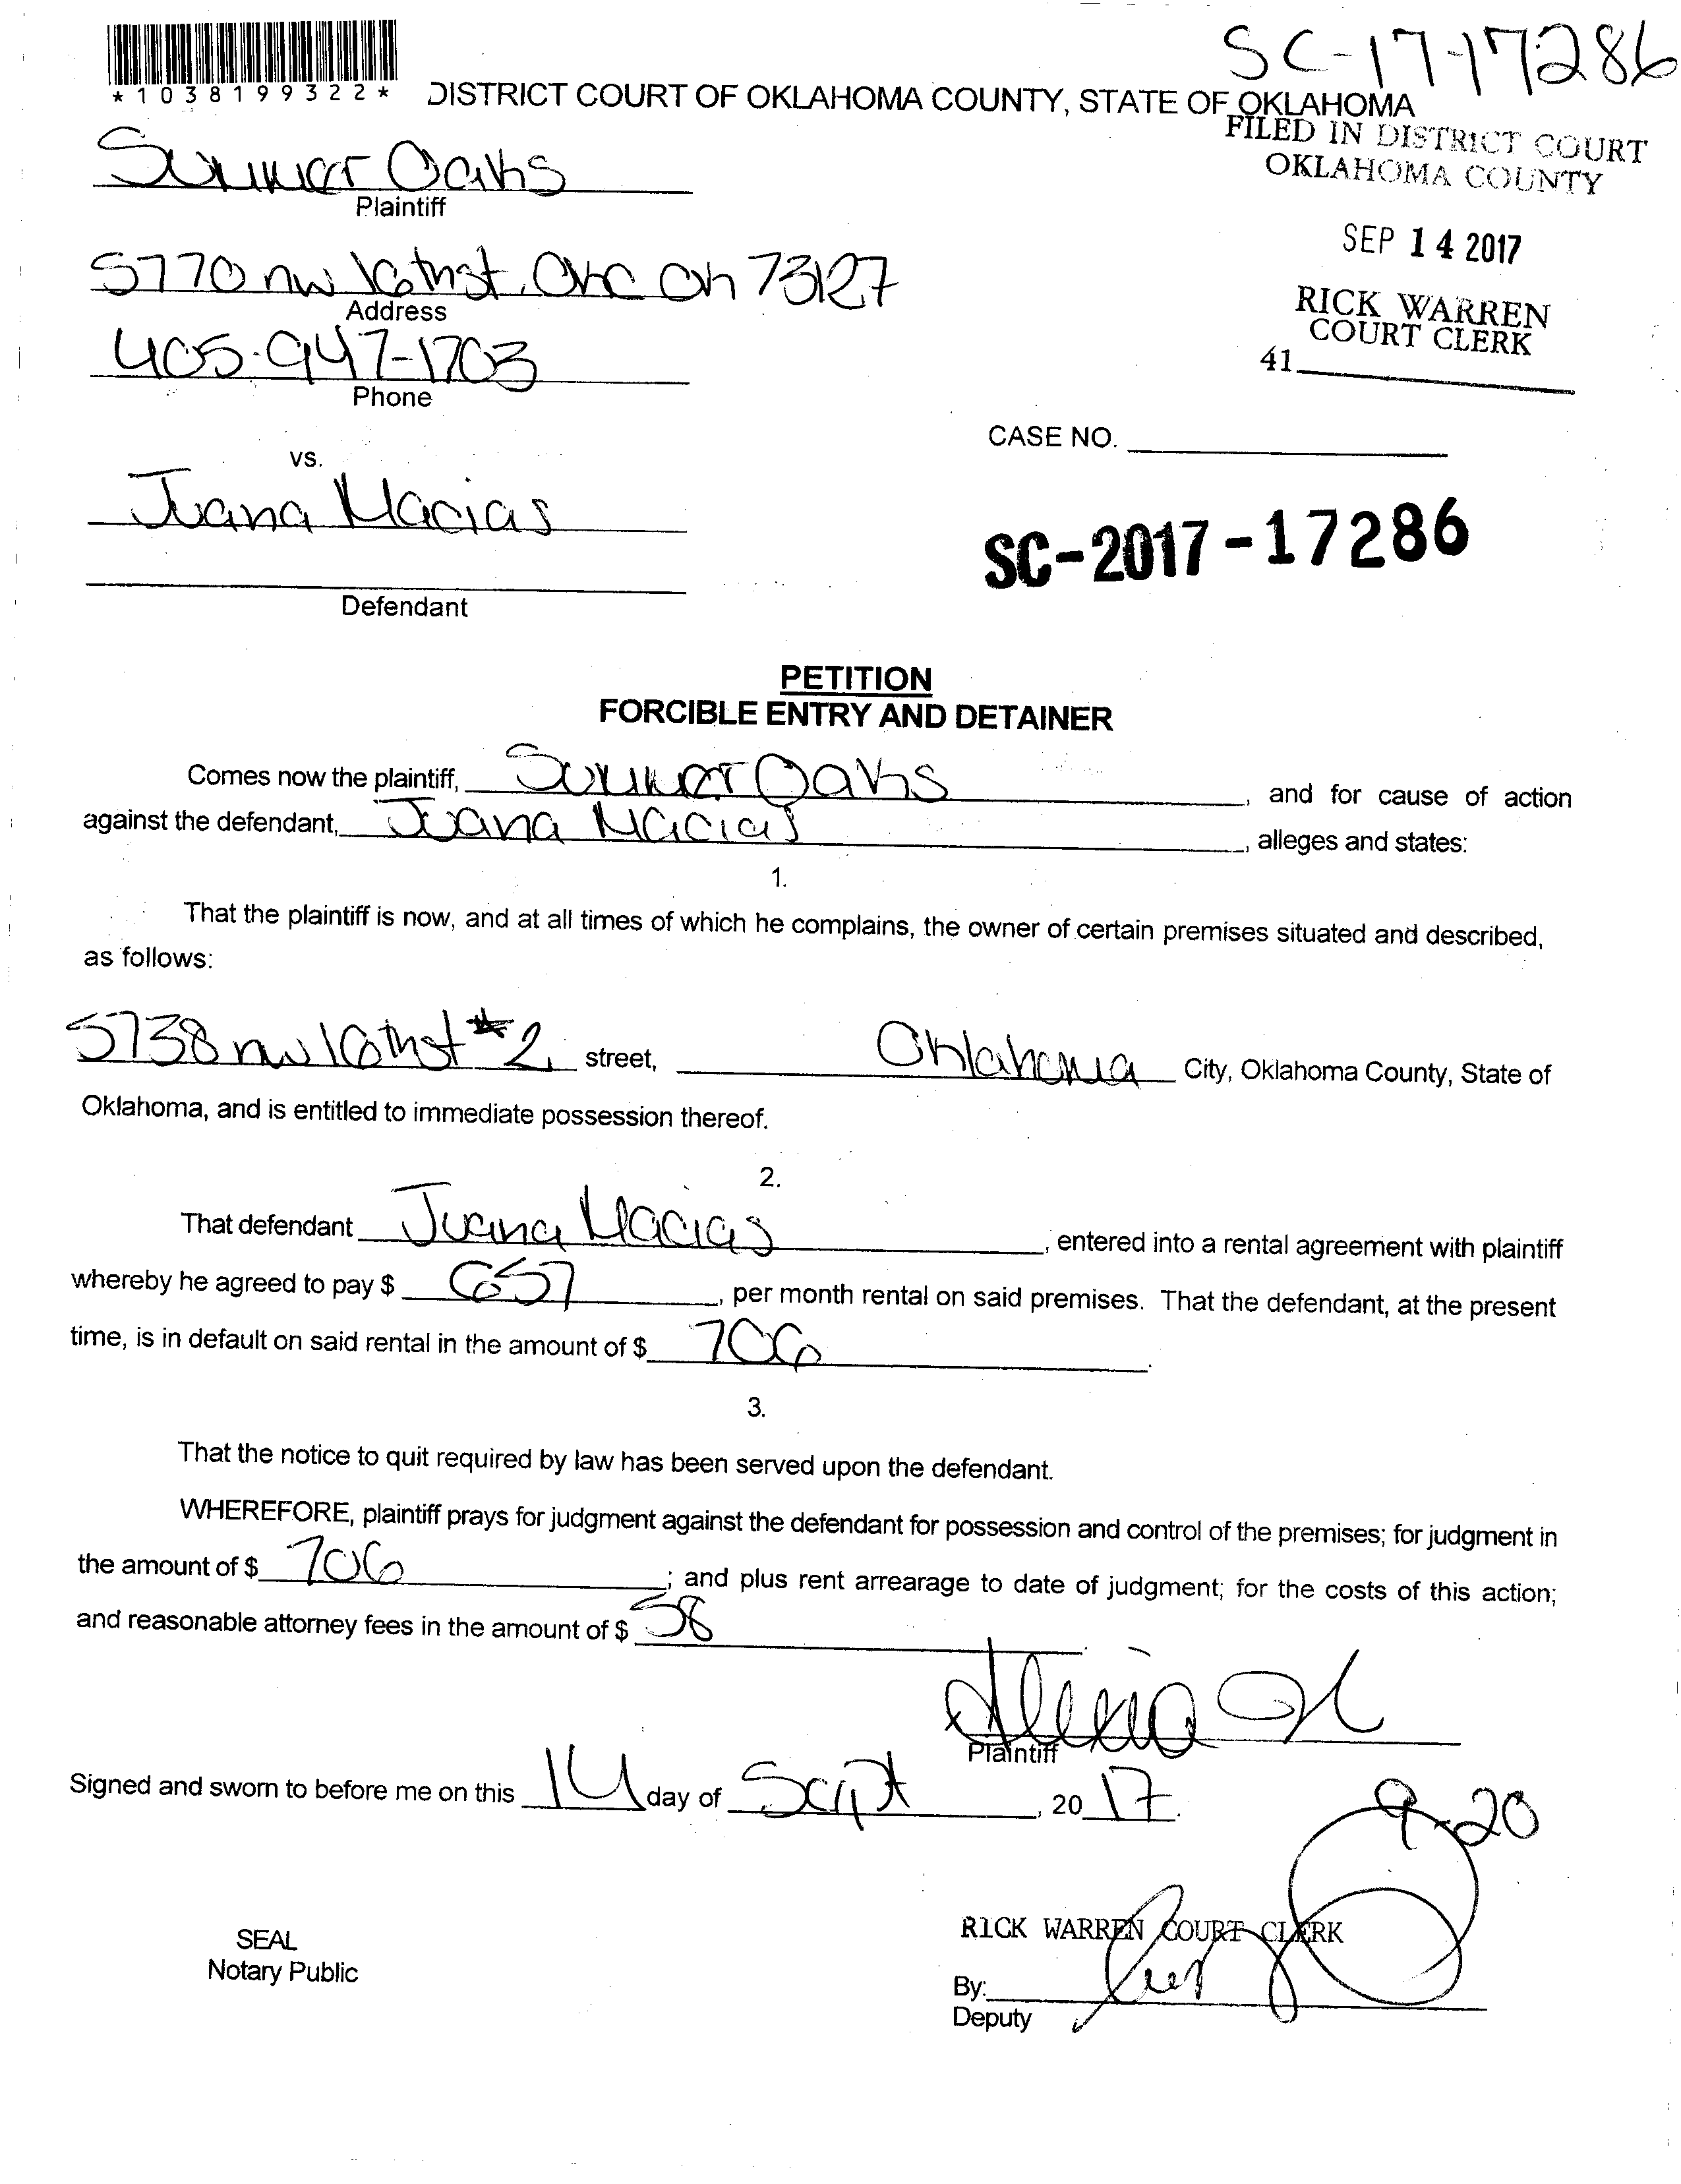 SC-17-17286
*1038199322*
DISTRICT COURT OF OKLAHOMA COUNTY, STATE OF OKLAHOMA
FILED IN DISTRICT COURT
OKLAHOMA COUNTY
Summer Oaks
Plaintiff
SEP 14 2017
5770 nw 16thst. OKC OK 73127
Address
RICK WARREN
COURT CLERK
405-947-1703
41
Phone
CASE NO.
vs.
Juana Macias
SC-2017-17286
Defendant
PETITION
FORCIBLE ENTRY AND DETAINER
Comes now the plaintiff, Summer Oaks, and for cause of action
against the defendant, Juana Macias, alleges and states:
1.
That the plaintiff is now, and at all times of which he complains, the owner of certain premises situated and described,
as follows:
5738 nw 16thst #2 street, Oklahoma City, Oklahoma County, State of
Oklahoma, and is entitled to immediate possession thereof.
2.
That defendant Juana Macias, entered into a rental agreement with plaintiff
whereby he agreed to pay $ 657, per month rental on said premises. That the defendant, at the present
time, is in default on said rental in the amount of $ 706.
3.
That the notice to quit required by law has been served upon the defendant.
WHEREFORE, plaintiff prays for judgment against the defendant for possession and control of the premises; for judgment in
the amount of $ 706; and plus rent arrearage to date of judgment; for the costs of this action;
and reasonable attorney fees in the amount of $ 58.
Plaintiff
Signed and sworn to before me on this 14 day of Sept, 2017.
9-20
RICK WARREN COURT CLERK
SEAL
Notary Public
By:
Deputy